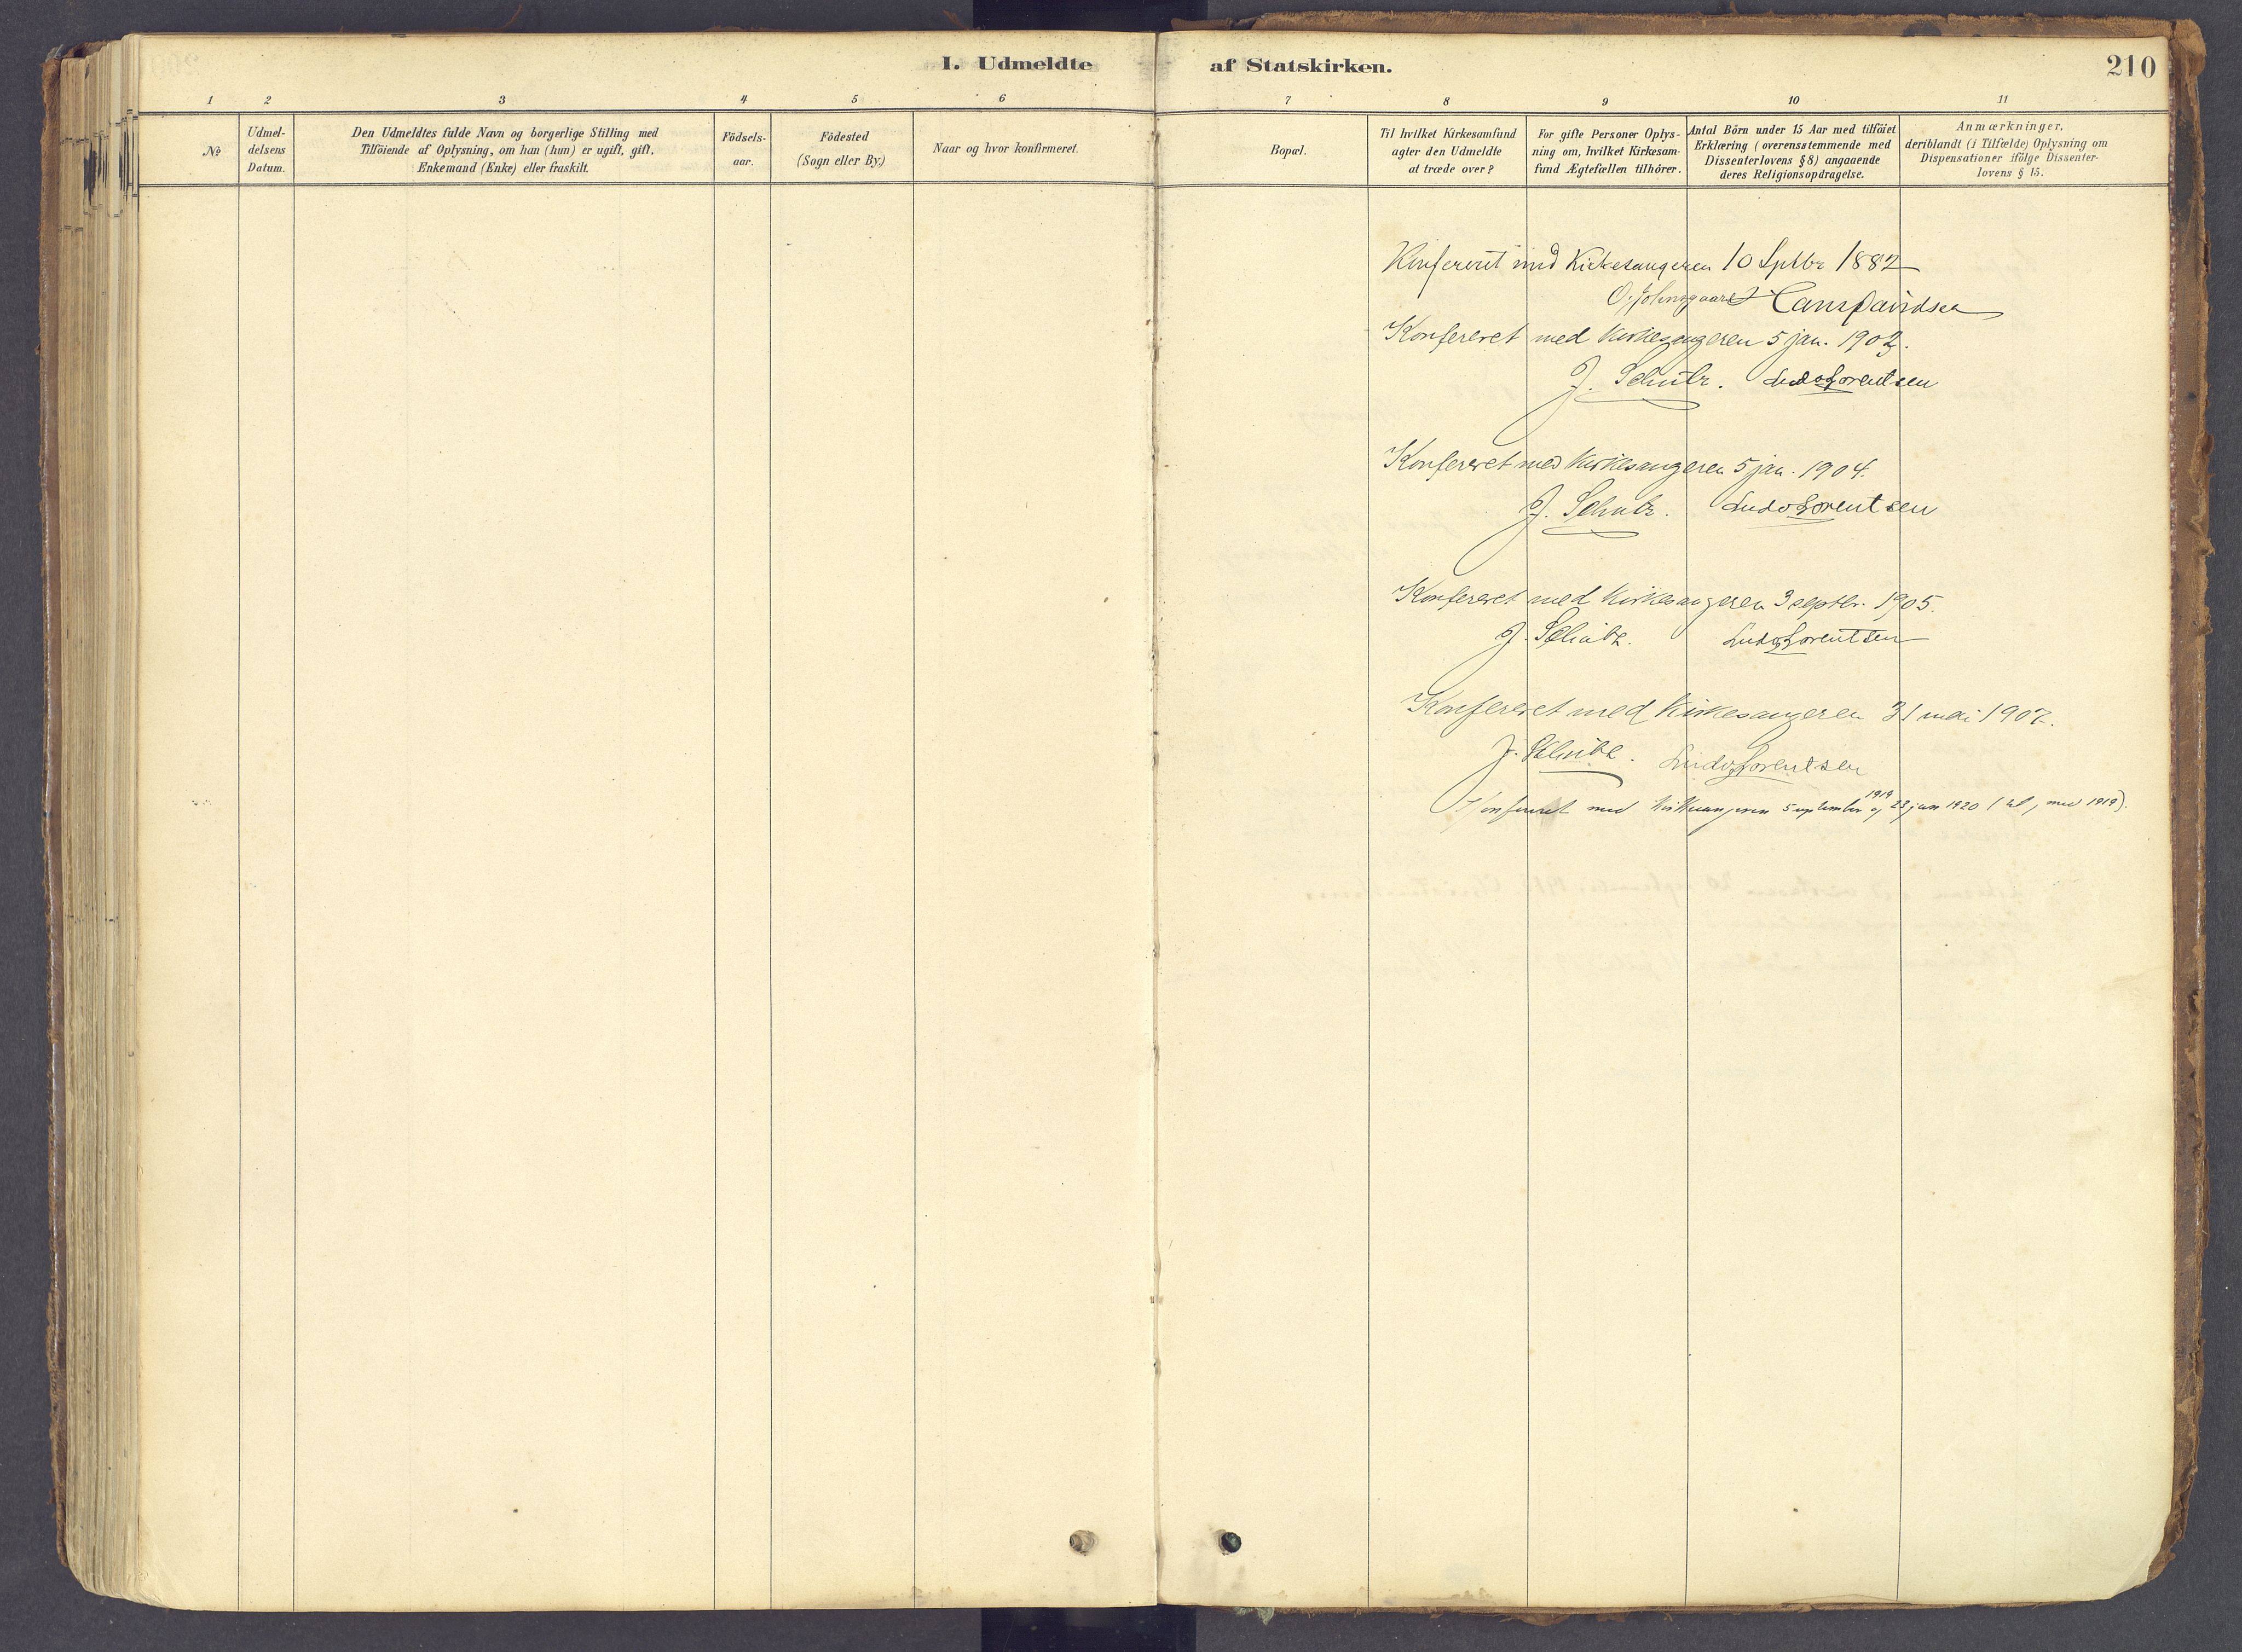 I. Udmeldte af Statskirken.
210
1 2 3 4 5 6 7 8 9 10 11
№
Udmel-
delsens
Datum.
Den Udmeldtes fulde Navn og borgerlige Stilling med
Tilföiende af Oplysning, om han (hun) er ugift, gift,
Enkemand (Enke) eller fraskilt.
Födsels-
aar.
Födested
(Sogn eller By.)
Naar og hvor konfirmeret.
Bopæl.
Til hvilket Kirkesamfund
agter den Udmeldte
at træde over?
For gifte Personer Oplys-
ning om, hvilket Kirkesam-
fund Ægtefællen tilhörer.
Antal Börn under 15 Aar med tilföiet
Erklæring (overensstemmende med
Dissenterlovens § 8) angaaende
deres Religionsopdragelse.
Anmærkninger,
deriblandt (i Tilfælde) Oplysning om
Dispensationer ifölge Dissenter-
lovens § 15.
Konfereret med Kirkesangeren 10 Septbr 1882
Davidsen
Konfereret med Kirkesangeren 5 jan. 1903.
J. Schütz. Ludo Lorentsen
Konfereret med Kirkesangeren 5 jan. 1904.
J. Schütz. Ludo Lorentsen
Konfereret med Kirkesangeren 3 septbr. 1905.
J. Schütz. Ludo Lorentsen
Konfereret med Kirkesangeren 31 mai 1907.
J. Schütz. Ludo Lorentsen
Konfereret med Kirkesangeren 5 september 1919 og 23 jan 1920 ( med 1919).